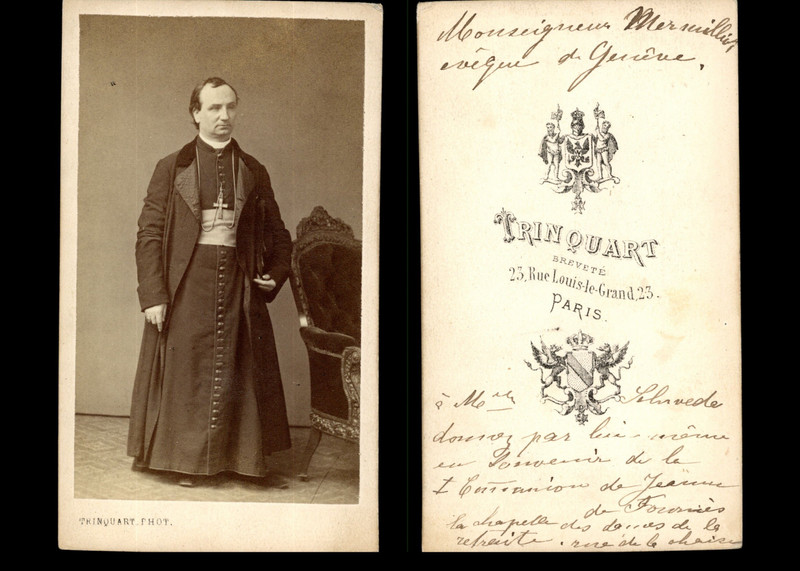 TRINQUART. PHOT.
Monseigneur Mermillod
évêque de Genève,
TRINQUART
BREVETÉ
23, Rue Louis-le-Grand, 23.
PARIS.
à Mlle
donnez par lui-même
en Souvenir de la
1 Communion de Jeanne
de
la chapelle des dames de la
retraite. rue de la chaise